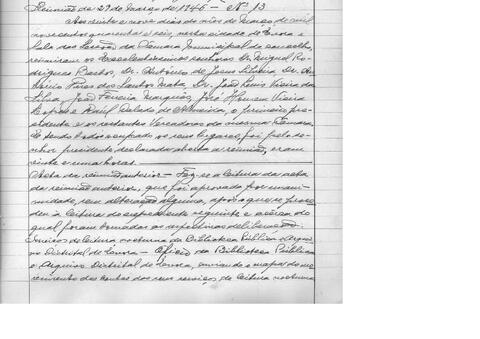 Reunião de 29 de Março de 1946 - Nº 13
Aos vinte e nove dias do mês de Março de mil
novecentos quarenta e seis, nesta cidade de Evora e
Sala das Sessões da Câmara Municipal do concelho,
reuniram os Excelentissimos senhores Dr. Miguel Ro-
drigues Bastos, Dr. António de Jesus Silveira, Dr. An-
Pires dos Santos Mata, Dr. João Luis Vieira da
Silva, João Ferreira Marques, José Homem Vieira
e Raúl de Almeida, o primeiro pre-
sidente e os restantes Vereadores da mesma Câmara.
E tendo todos ocupado os seus lugares, foi pelo se-
nhor presidente declarada aberta a reunião, eram
vinte e uma horas.
Acta da reunião anterior - Fez-se a leitura da acta
da reunião anterior, que foi aprovada por unani-
midade, sem alteração alguma, após o que se proce-
deu à leitura do expediente seguinte e acêrca do
qual foram tomadas as respectivas deliberações.
Serviços de leitura nocturna da Biblioteca Pública e Arqui-
vo Distrital de Evora - Oficio da Biblioteca Pública
e Arquivo Distrital de Evora, enviando o mapa do mo-
vimento dos seus serviços de leitura nocturna